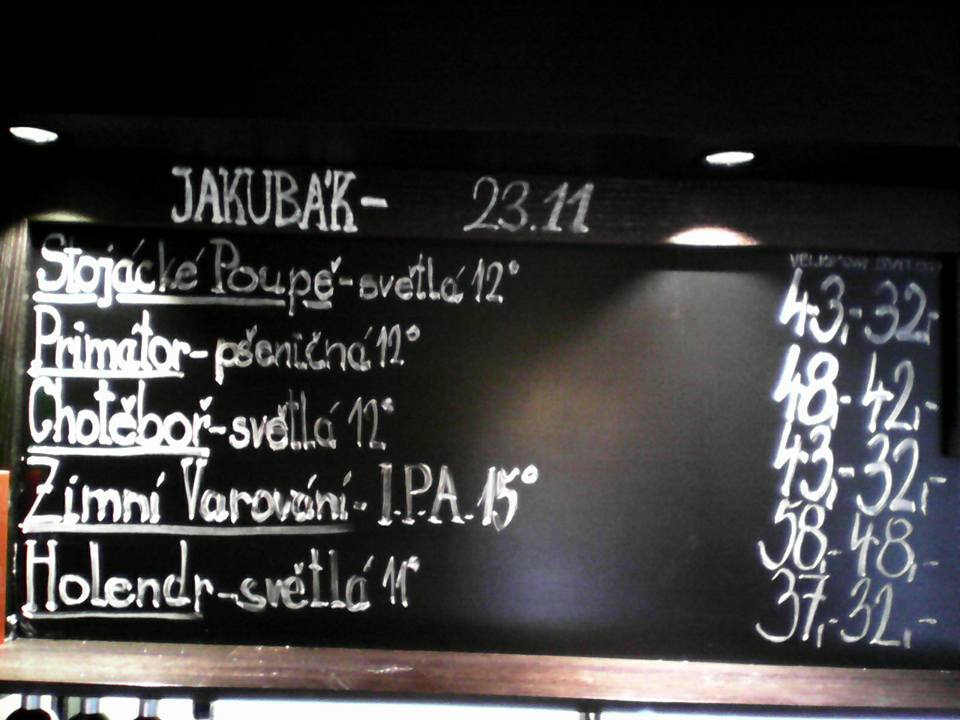 JAKUBÁK- 23.11
Stojácké Poupě-světlá 12° 43,- 32,-
Primátor-pšeničná 12° 48,- 42,-
Chotěboř-světlá 12° 43,- 32,-
Zimní Varování-I.P.A. 15° 58,- 48,-
Holendr-světlá 11° 37,- 32,-